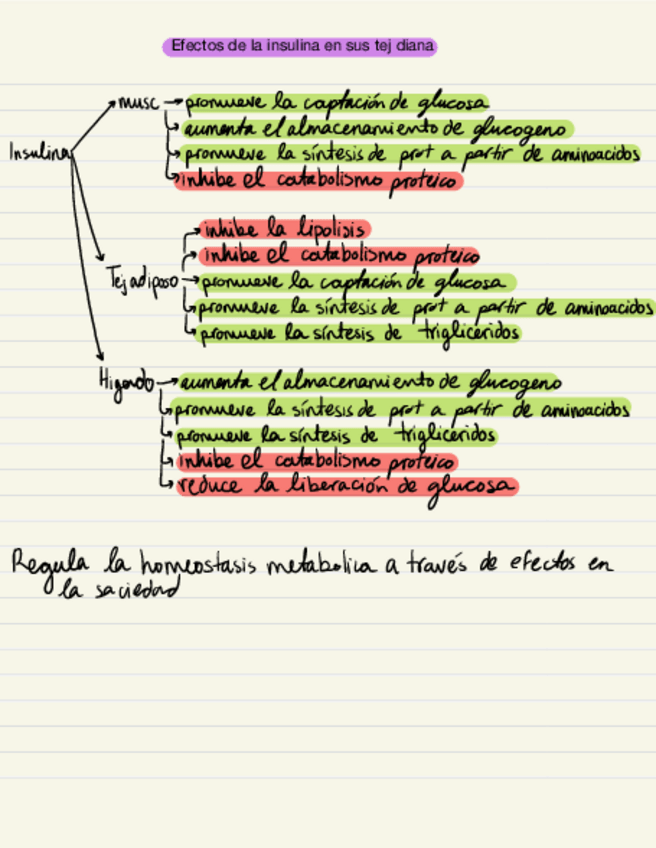 Efectos de la insulina en sus tej diana
musc → promueve la captación de glucosa
aumenta el almacenamiento de glucogeno
Insulina
promueve la síntesis de prot a partir de aminoacidos
inhibe el catabolismo proteico
inhibe la lipolisis
inhibe el catabolismo proteico
Tej adiposo → promueve la captación de glucosa
promueve la síntesis de prot a partir de aminoacidos
promueve la síntesis de trigliceridos
Higado → aumenta el almacenamiento de glucogeno
promueve la síntesis de prot a partir de aminoacidos
promueve la síntesis de trigliceridos
inhibe el catabolismo proteico
reduce la liberación de glucosa
Regula la homeostasis metabolica a través de efectos en
la saciedad